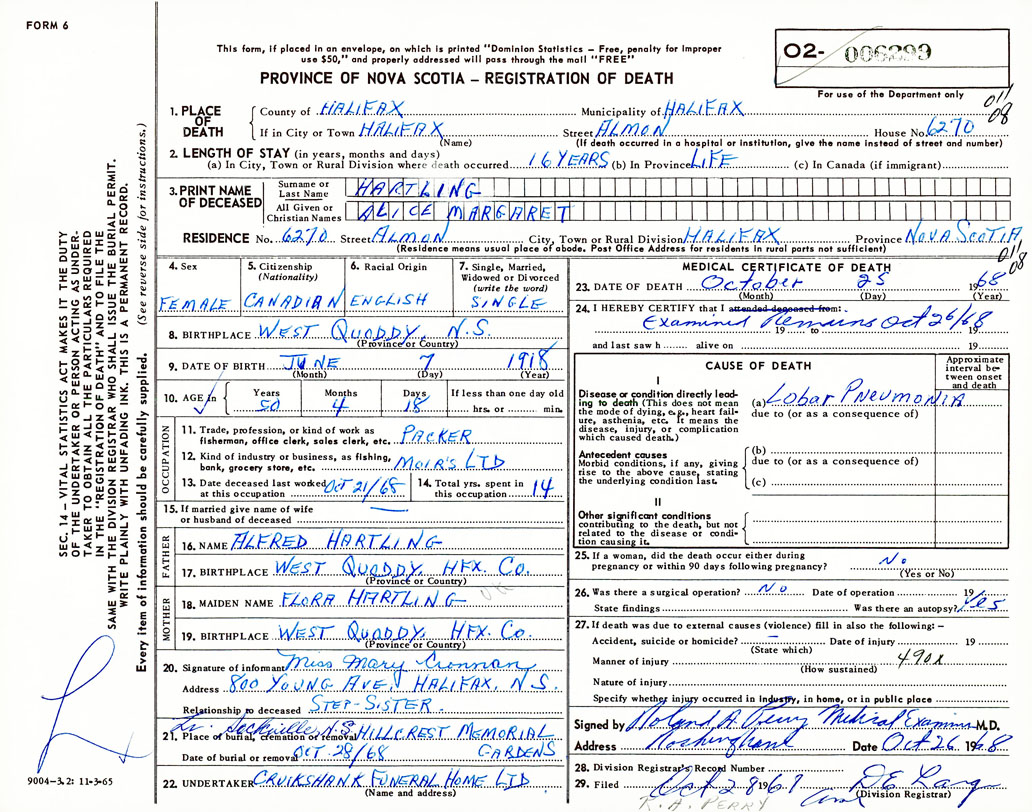 FORM 6
This form, if placed in an envelope, on which is printed "Dominion Statistics – Free, penalty for improper
use $50," and properly addressed will pass through the mail "FREE"
PROVINCE OF NOVA SCOTIA – REGISTRATION OF DEATH
02- 006399
For use of the Department only
011
08
1. PLACE OF DEATH
County of HALIFAX Municipality of HALIFAX
If in City or Town HALIFAX Street ALMON House No. 6270
(Name) (If death occurred in a hospital or institution, give the name instead of street and number)
2. LENGTH OF STAY (in years, months and days)
(a) In City, Town or Rural Division where death occurred 16 YEARS (b) In Province LIFE (c) In Canada (if immigrant)
3. PRINT NAME OF DECEASED
Surname or Last Name HARTLING
All Given or Christian Names ALICE MARGARET
RESIDENCE No. 6270 Street ALMON City, Town or Rural Division HALIFAX Province NOVA SCOTIA
(Residence means usual place of abode. Post Office Address for residents in rural parts not sufficient)
011
08
4. Sex FEMALE
5. Citizenship (Nationality) CANADIAN
6. Racial Origin ENGLISH
7. Single, Married, Widowed or Divorced (write the word) SINGLE
8. BIRTHPLACE WEST QUODDY, N.S.
(Province or Country)
9. DATE OF BIRTH JUNE 7 1918
(Month) (Day) (Year)
10. AGE in Years 50 Months 4 Days 18 If less than one day old hrs. or min.
OCCUPATION
11. Trade, profession, or kind of work as
fisherman, office clerk, sales clerk, etc. PACKER
12. Kind of industry or business, as fishing,
bank, grocery store, etc. MOIR'S LTD
13. Date deceased last worked
at this occupation OCT 21/68
14. Total yrs. spent in
this occupation 14
15. If married give name of wife
or husband of deceased —
FATHER
16. NAME ALFRED HARTLING
17. BIRTHPLACE WEST QUODDY, HFX. CO.
(Province or Country)
MOTHER
18. MAIDEN NAME FLORA HARTLING
19. BIRTHPLACE WEST QUODDY, HFX. CO.
(Province or Country)
20. Signature of informant Miss Mary Cronnan
Address 800 YOUNG AVE, HALIFAX, N.S.
Relationship to deceased STEP-SISTER.
Sackville, N.S.
21. Place of burial, cremation or removal HILLCREST MEMORIAL
GARDENS
Date of burial or removal OCT 28/68
22. UNDERTAKER CRUIKSHANK FUNERAL HOME LTD
(Name and address)
MEDICAL CERTIFICATE OF DEATH
23. DATE OF DEATH October 25 1968
(Month) (Day) (Year)
24. I HEREBY CERTIFY that I attended deceased from:
Examined Remains Oct 26/68
19 to 19
and last saw h alive on 19
CAUSE OF DEATH
Approximate interval between onset and death
I
Disease or condition directly leading to death (This does not mean the mode of dying, e.g., heart failure, asthenia, etc. It means the disease, injury, or complication which caused death.)
(a) Lobar PNEUMONIA
due to (or as a consequence of)
Antecedent causes
Morbid conditions, if any, giving rise to the above cause, stating the underlying condition last.
(b)
due to (or as a consequence of)
(c)
II
Other significant conditions
contributing to the death, but not related to the disease or condition causing it.
25. If a woman, did the death occur either during
pregnancy or within 90 days following pregnancy? No
(Yes or No)
26. Was there a surgical operation? No Date of operation 19
State findings Was there an autopsy? Yes
27. If death was due to external causes (violence) fill in also the following: –
Accident, suicide or homicide? – Date of injury 19
(State which)
Manner of injury 490X
(How sustained)
Nature of injury
Specify whether injury occurred in Industry, in home, or in public place
Signed by Roland A. Perry Medical Examiner M.D.
Address Date Oct 26 1968
28. Division Registrar's Record Number
29. Filed Oct 28 1968
(Division Registrar)
R. A. PERRY
SEC. 14 – VITAL STATISTICS ACT MAKES IT THE DUTY
OF THE UNDERTAKER OR PERSON ACTING AS UNDER-
TAKER TO OBTAIN ALL THE PARTICULARS REQUIRED
IN THE "REGISTRATION OF DEATH" AND TO FILE THE
SAME WITH THE DIVISION REGISTRAR WHO SHALL ISSUE THE BURIAL PERMIT.
WRITE PLAINLY WITH UNFADING INK. THIS IS A PERMANENT RECORD.
Every item of information should be carefully supplied. (See reverse side for instructions.)
9004-3.2: 11-3-65